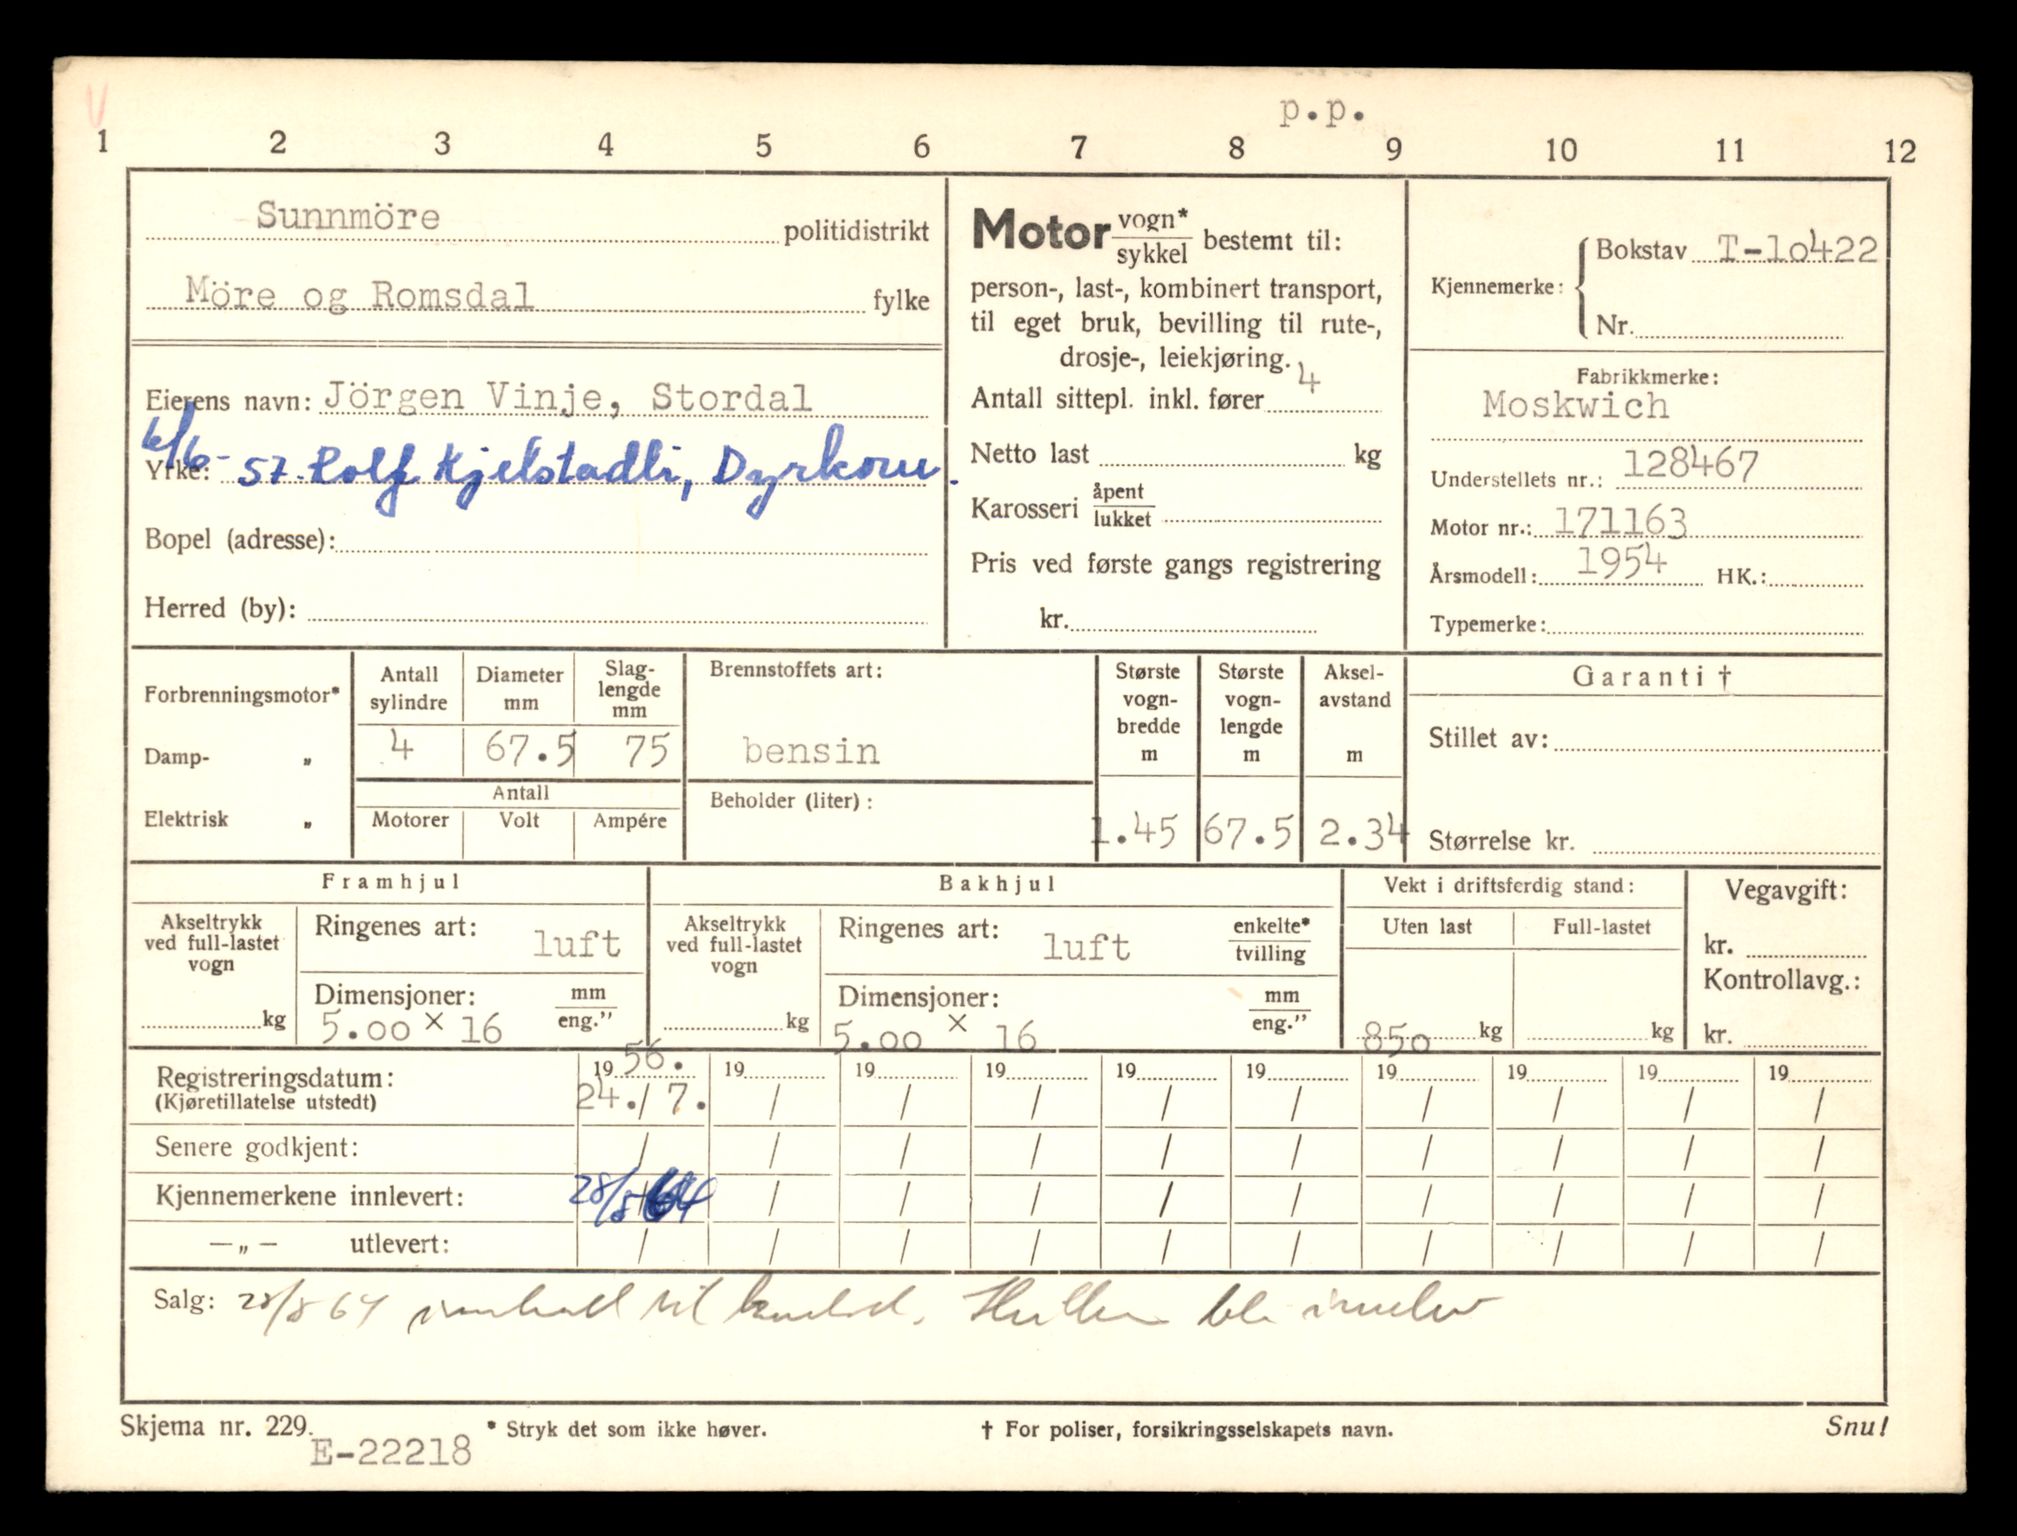 p.p.
1 2 3 4 5 6 7 8 9 10 11 12
Sunnmöre politidistrikt
Möre og Romsdal fylke
Eierens navn: Jörgen Vinje, Stordal
6/6-57. Rolf Kjelstadli, Dyrkorn.
Yrke:
Bopel (adresse):
Herred (by):
Motor vogn* / sykkel bestemt til:
person-, last-, kombinert transport,
til eget bruk, bevilling til rute-,
drosje-, leiekjøring.
Antall sittepl. inkl. fører 4
Netto last kg
Karosseri åpent / lukket
Pris ved første gangs registrering
kr.
Kjennemerke: Bokstav T-10422
Nr.
Fabrikkmerke:
Moskwich
Understellets nr.: 128467
Motor nr.: 171163
Årsmodell: 1954 HK.:
Typemerke:
Forbrenningsmotor*
Damp- „
Elektrisk „
Antall sylindre Diameter mm Slag-lengde mm
4 67.5 75
Antall
Motorer Volt Ampére
Brennstoffets art:
bensin
Beholder (liter):
Største vogn-bredde m Største vogn-lengde m Aksel-avstand m
1.45 67.5 2.34
Garanti †
Stillet av:
Størrelse kr.
Framhjul
Akseltrykk ved full-lastet vogn
kg
Ringenes art: luft
Dimensjoner: mm / eng."
5.00 x 16
Bakhjul
Akseltrykk ved full-lastet vogn
kg
Ringenes art: luft enkelte* / tvilling
Dimensjoner: mm / eng."
5.00 x 16
Vekt i driftsferdig stand:
Uten last Full-lastet
850 kg kg
Vegavgift:
kr.
Kontrollavg.:
kr.
Registreringsdatum: 1956. 19 19 19 19 19 19 19 19 19
(Kjøretillatelse utstedt) 24./7. / / / / / / / / /
Senere godkjent: / / / / / / / / / /
Kjennemerkene innlevert: 28/8 64 / / / / / / / / /
—„— utlevert: / / / / / / / / / /
Salg: 28/8 64 til
Skjema nr. 229. * Stryk det som ikke høver. † For poliser, forsikringsselskapets navn. Snu!
E-22218